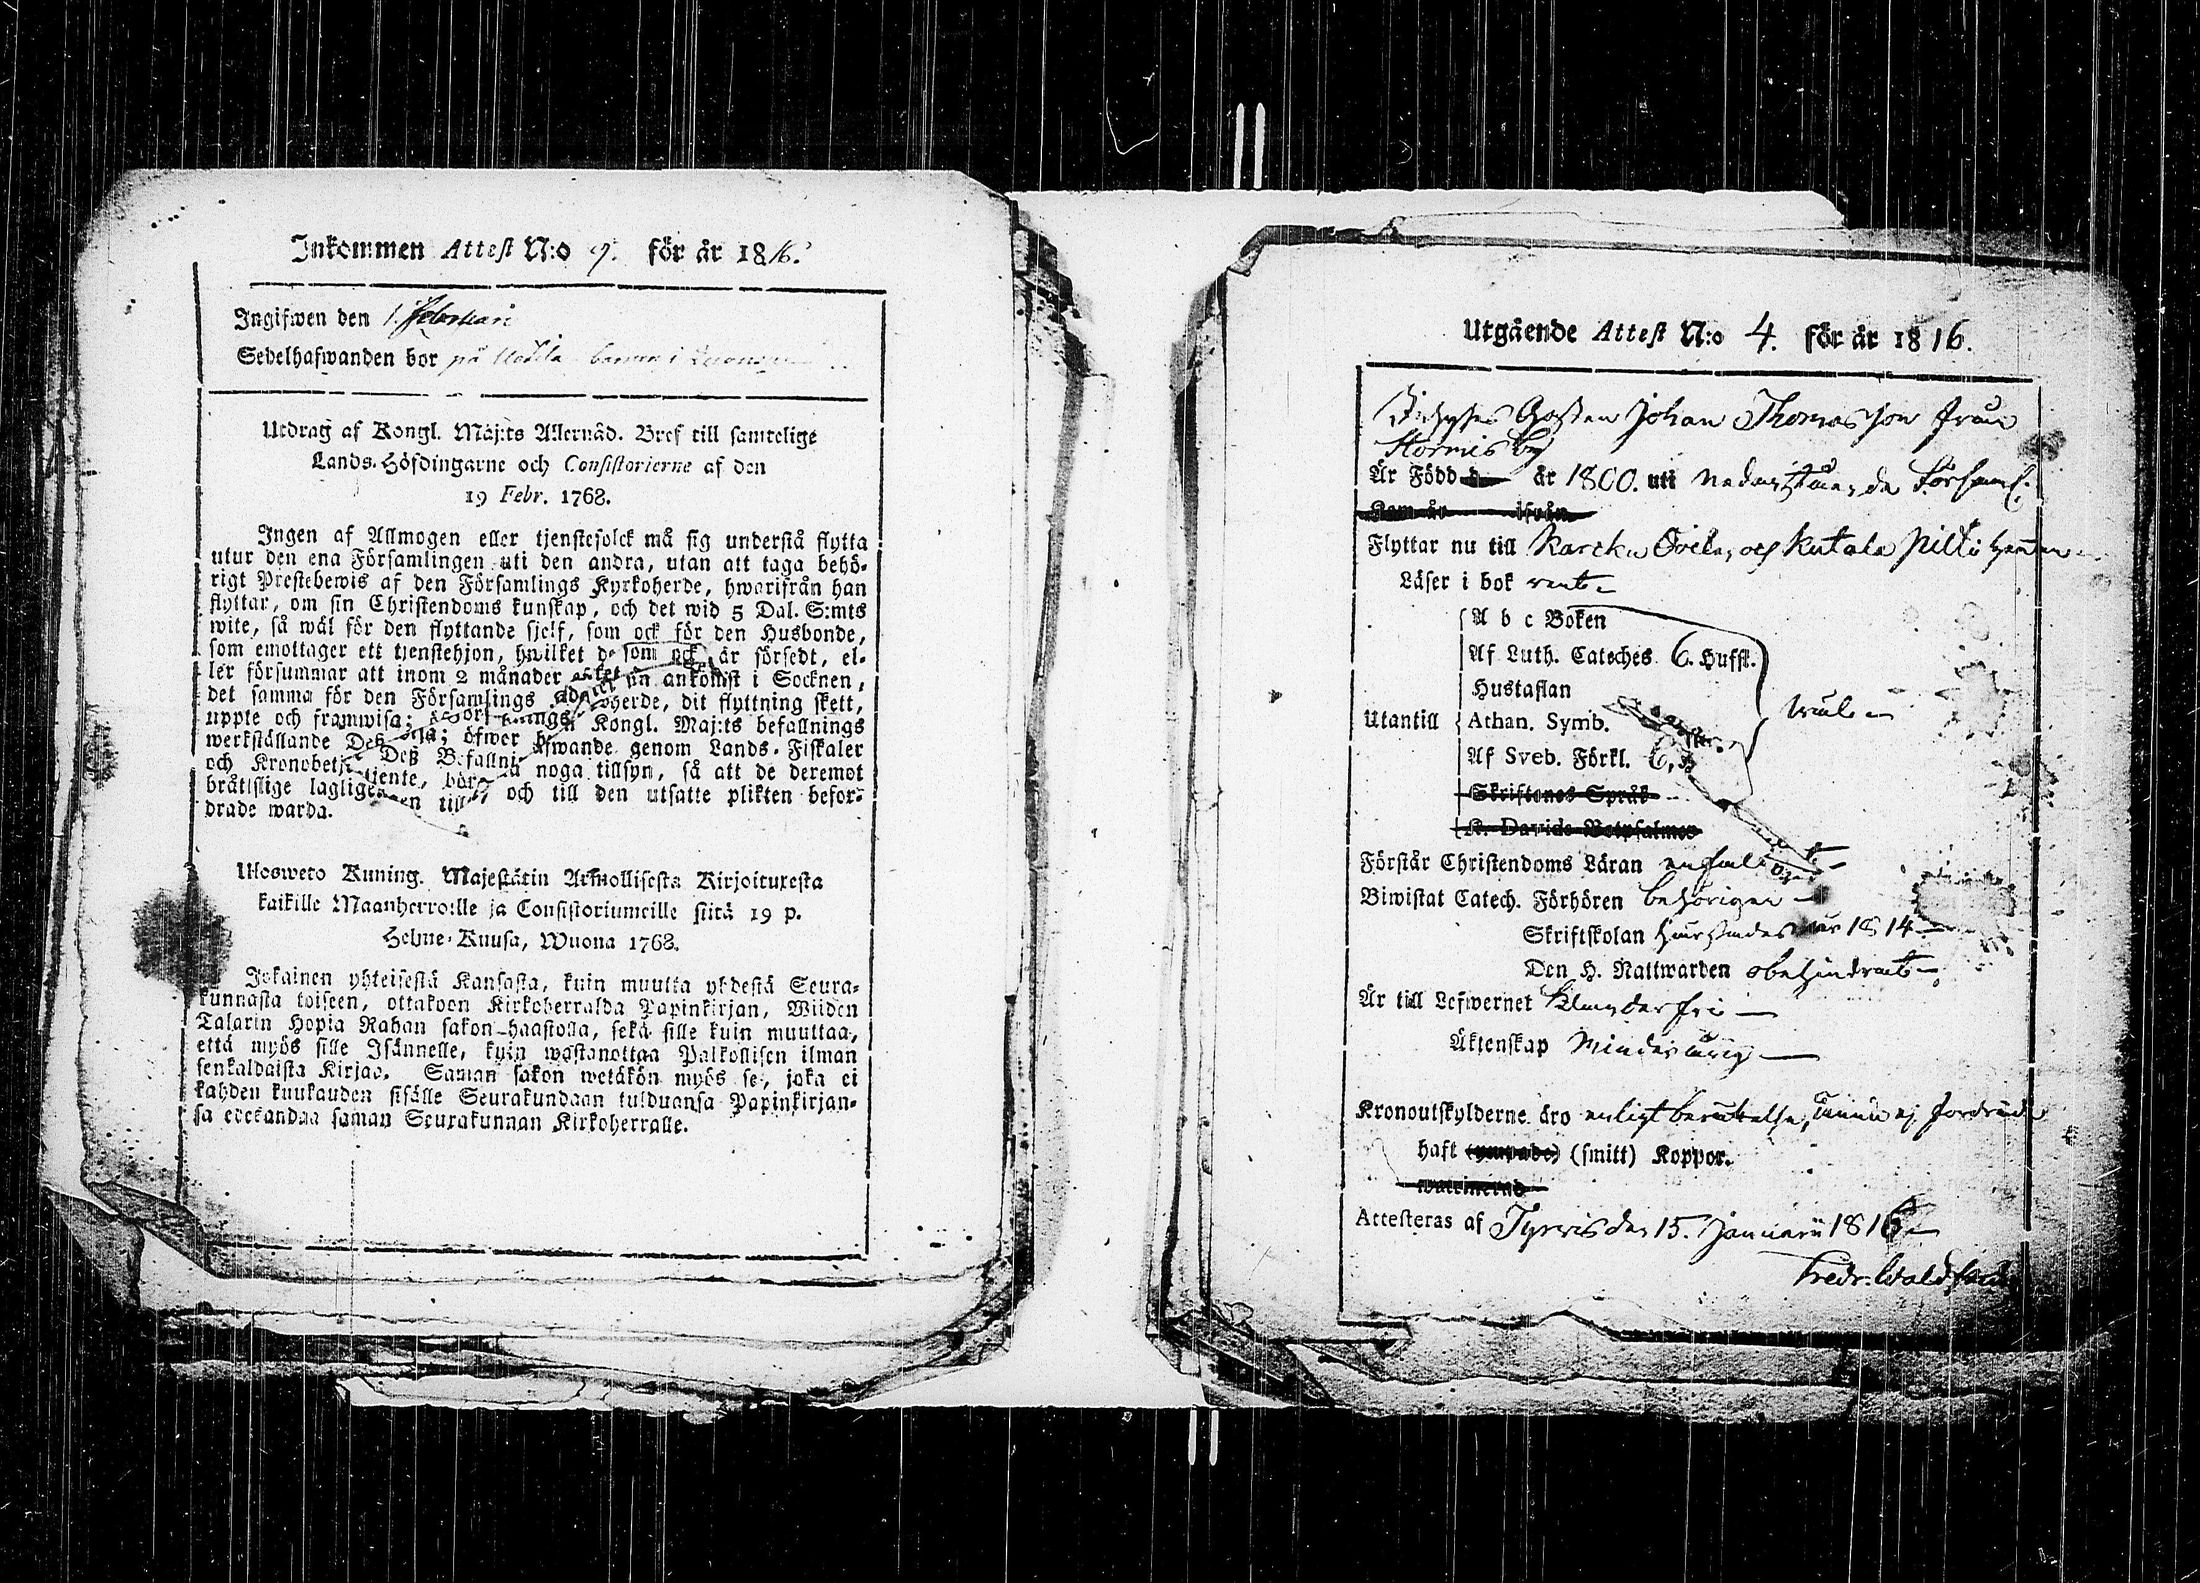 Inkommen Attest N:o 9. för år 1816.
Ingifwen den 1. Februari
Sedelhafwanden bor på
Utdrag af Kongl. Maj:ts Allernåd. Bref till samtelige
Lands-Höfdingarne och Consistorierne af den
19 Febr. 1768.
Ingen af Allmogen eller tjenstefolck må sig understå flytta
utur den ena Församlingen uti den andra, utan att taga behö-
rigt Prestebewis af den Församlings Kyrkoherde, hwarifrån han
flyttar, om sin Christendoms kunskap, och det wid 5 Dal. S:mts
wite, så wäl för den flyttande sjelf, som ock för den Husbonde,
som emottager ett tjenstehjon, hwilket är försedt, el-
ler försummar att inom 2 månader sin ankomst i Socknen,
det samma för den Församlings herde, dit flyttning skett,
uppte och framwisa; Kongl. Maj:ts befallnings
werkställande öfwer hafwande genom Lands-Fiskaler
och Kronobetjente, noga tillsyn, så att de deremot
bråttslige lagligen och till den utsatte plikten befor-
drade warda.
Ulosweto Kuning. Majestätin Armollisesta Kirjoituxesta
kaikille Maanherroille ja Consistoriumeille siitä 19 p.
Helme-Kuusa, Wuona 1768.
Jokainen yhteisestä Kansasta, kuin muutta yhdestä Seura-
kunnasta toiseen, ottakoon Kirkoherralda Papinkirjan, Wiiden
Talarin Hopia Rahan sakon haastolla, sekä sille kuin muuttaa,
että myös sille Isännelle, kuin wastanottaa Palkollisen ilman
senkaldaista Kirjao. Saman sakon wetäkön myös se, joka ei
kahden kuukauden sisälle Seurakundaan tulduansa Papinkirjan-
sa edeskandaa saman Seurakunnan Kirkoherralle.
Utgående Attest N:o 4. för år 1816.
Johan Thomasson från
Stormis by
Är Född år 1800. uti nedanstående Församl.
Kam år ifrån
Flyttar nu till Karcku och Kutala
Läser i bok rent
A b c Boken
Af Luth. Cateches 6. Hufst.
Hustaflan
Utantill Athan. Symb.
Af Sveb. Förkl. 6,
Skriftenes Språk
K. Davids Botpsalmer
Förstår Christendoms Läran enfaldigt
Biwistat Catech. Förhören behörigen
Skriftskolan år 1814
Den H. Nattwarden obehindradt
Är till Lefwernet klanderfri
Äktenskap Minderårig
Kronoutskylderne äro enligt berättelse, ej fordrade
haft (smitt) Koppor.
Attesteras af Tyrvis den 15. Januarii 1816
Fredr.